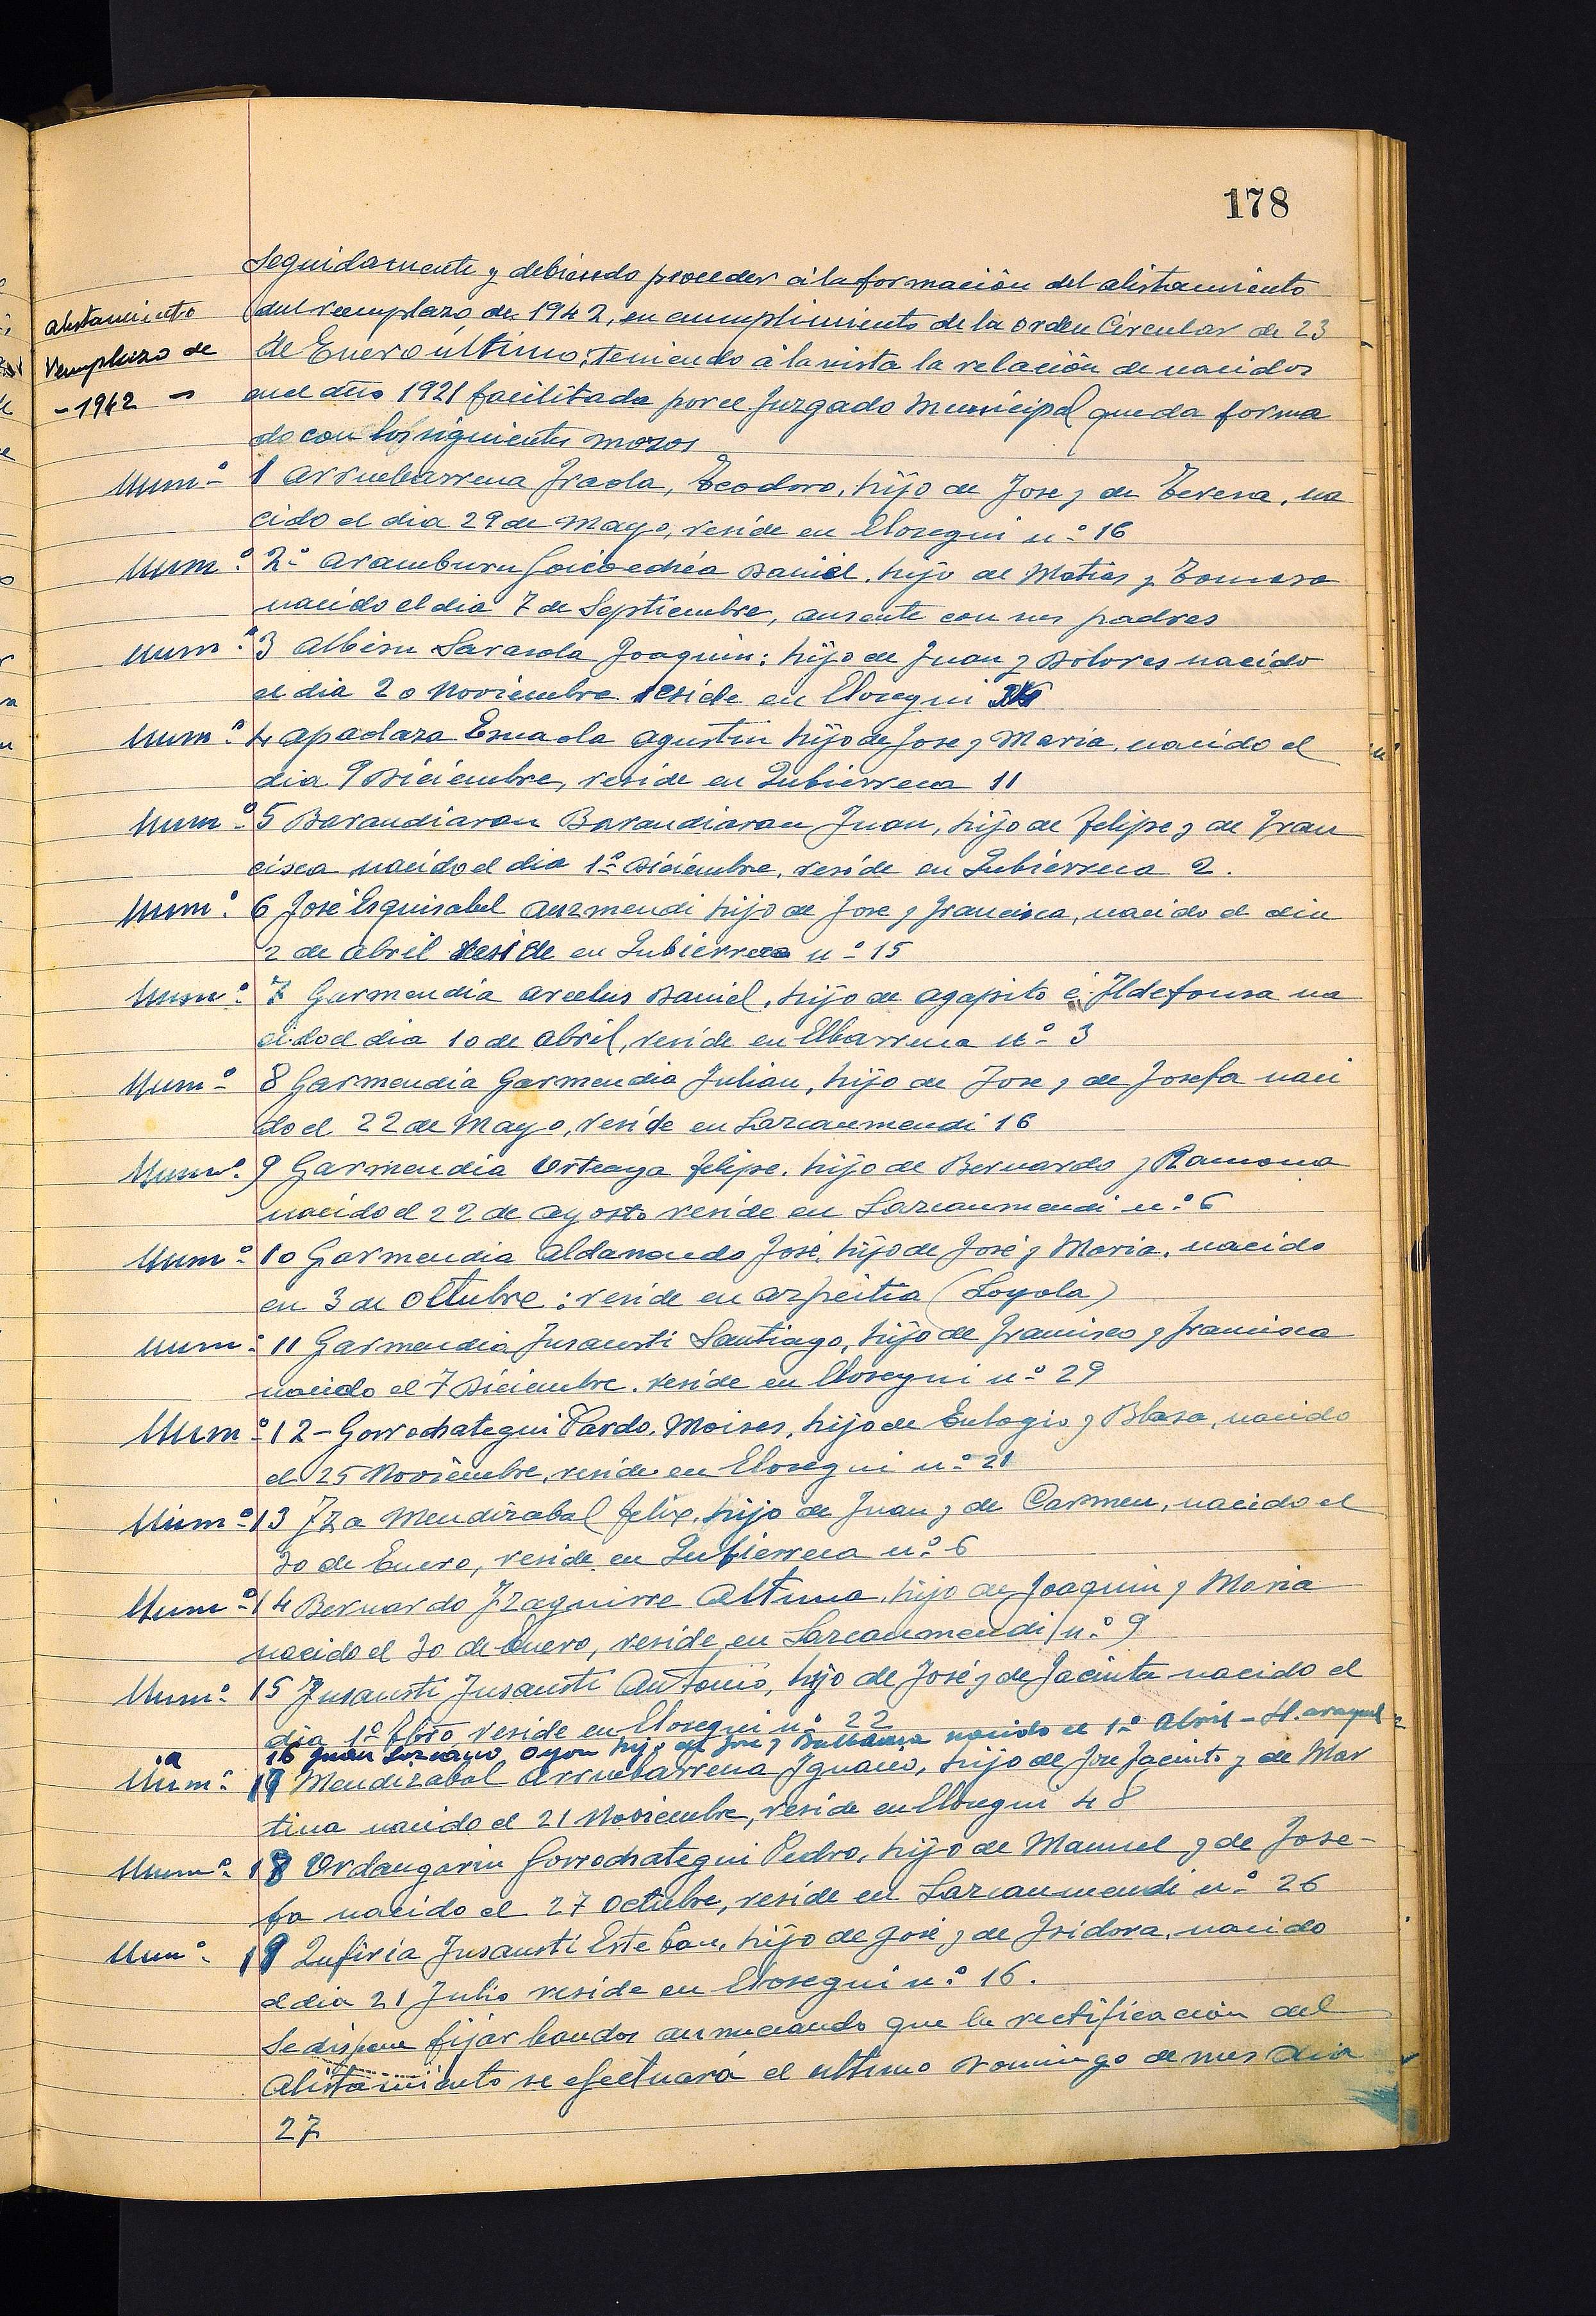 178
Seguidamente y debiendo proceder á la formación del alistamiento
alistamiento
Vemplazo de
-1942 -
del reemplazo de 1942, en cumplimiento de la orden Circular de 23
de Enero último; teniendo á la vista la relación de nacidos
en el año 1921 facilitada por el Juzgado Municipal queda forma
do con los siguientes mozos
Num.º 1 Arruebarrena Iraola, Teodoro, hijo de Jose y de Teresa, na
cido el dia 29 de Mayo, reside en Elosegui n.º 16
Num.º 2.º Aramburu Goicoechéa Daniel, hijo de Matias y Tomasa
nacido el dia 7 de Septiembre, ausente con sus padres
Num.º 3 Albisu Sarasola Joaquin; hijo de Juan y Dolores nacido
el dia 20 Noviembre reside en Elosegui
Num.º 4 Apaolaza Esnaola Agustin hijo de Jose y Maria, nacido el
dia 9 Diciembre, reside en Zubierreca 11
Num.º 5 Barandiaran Barandiaran Juan, hijo de Felipe y de Fran
cisca nacido el dia 1.º Diciembre, reside en Zubierreca 2.
Num.º 6 José Esquisabel Auzmendi hijo de Jose y Francisca, nacido el dia
2 de Abril reside en Zubierreca n.º 15
Num.º 7 Garmendia Arcelus Daniel, hijo de Agapito é Ildefonsa na
cido el dia 10 de Abril, reside en Elbarrena n.º 3
Num.º 8 Garmendia Garmendia Julian, hijo de Jose y de Josefa naci
do el 22 de Mayo, reside en Lazcaumendi 16
Num.º 9 Garmendia Urteaga Felipe, hijo de Bernardo y Ramona
nacido el 22 de Agosto reside en Lazcaumendi n.º 6
Num.º 10 Garmendia Aldanondo José, hijo de José y Maria, nacido
en 3 de Octubre; reside en Azpeitia (Loyola)
Num.º 11 Garmendia Insausti Santiago, hijo de Francisco y Francisca
nacido el 7 Diciembre, reside en Elosegui n.º 29
Num.º 12 - Gorrochategui Pardo, Moises, hijo de Eulogio y Blasa, nacido
el 25 Noviembre, reside en Elosegui n.º 21
Num.º 13 Iza Mendizabal Felix, hijo de Juan y de Carmen, nacido el
30 de Enero, reside en Zubierreca n.º 6
Num.º 14 Bernardo Izaguirre Altuna, hijo de Joaquin y Maria
nacido el 30 de Enero, reside en Lazcaumendi n.º 9
Num.º 15 Insausti Insausti Antonio, hijo de José y de Jacinta nacido el
dia 1.º Fbro reside en Elosegui n.º 22
16 Juan Lozcano hijo de Jose y nacido el 1.º Abril -
Num.º 17 Mendizabal Arruebarrena Ignacio, hijo de Jose Jacinto y de Mar
tina nacido el 21 Noviembre, reside en Elosegui 48
Num.º 18 Urdangarin Gorrochategui Pedro, hijo de Manuel y de Jose-
fa nacido el 27 Octubre, reside en Lazcaumendi n.º 26
Num.º 19 Zufiria Insausti Esteban, hijo de José y de Isidora, nacido
el dia 21 Julio reside en Elosegui n.º 16.
Se dispone fijar bandos anunciando que la rectificacion del
Alistamiento se efectuará el ultimo Domingo de mes dia
27